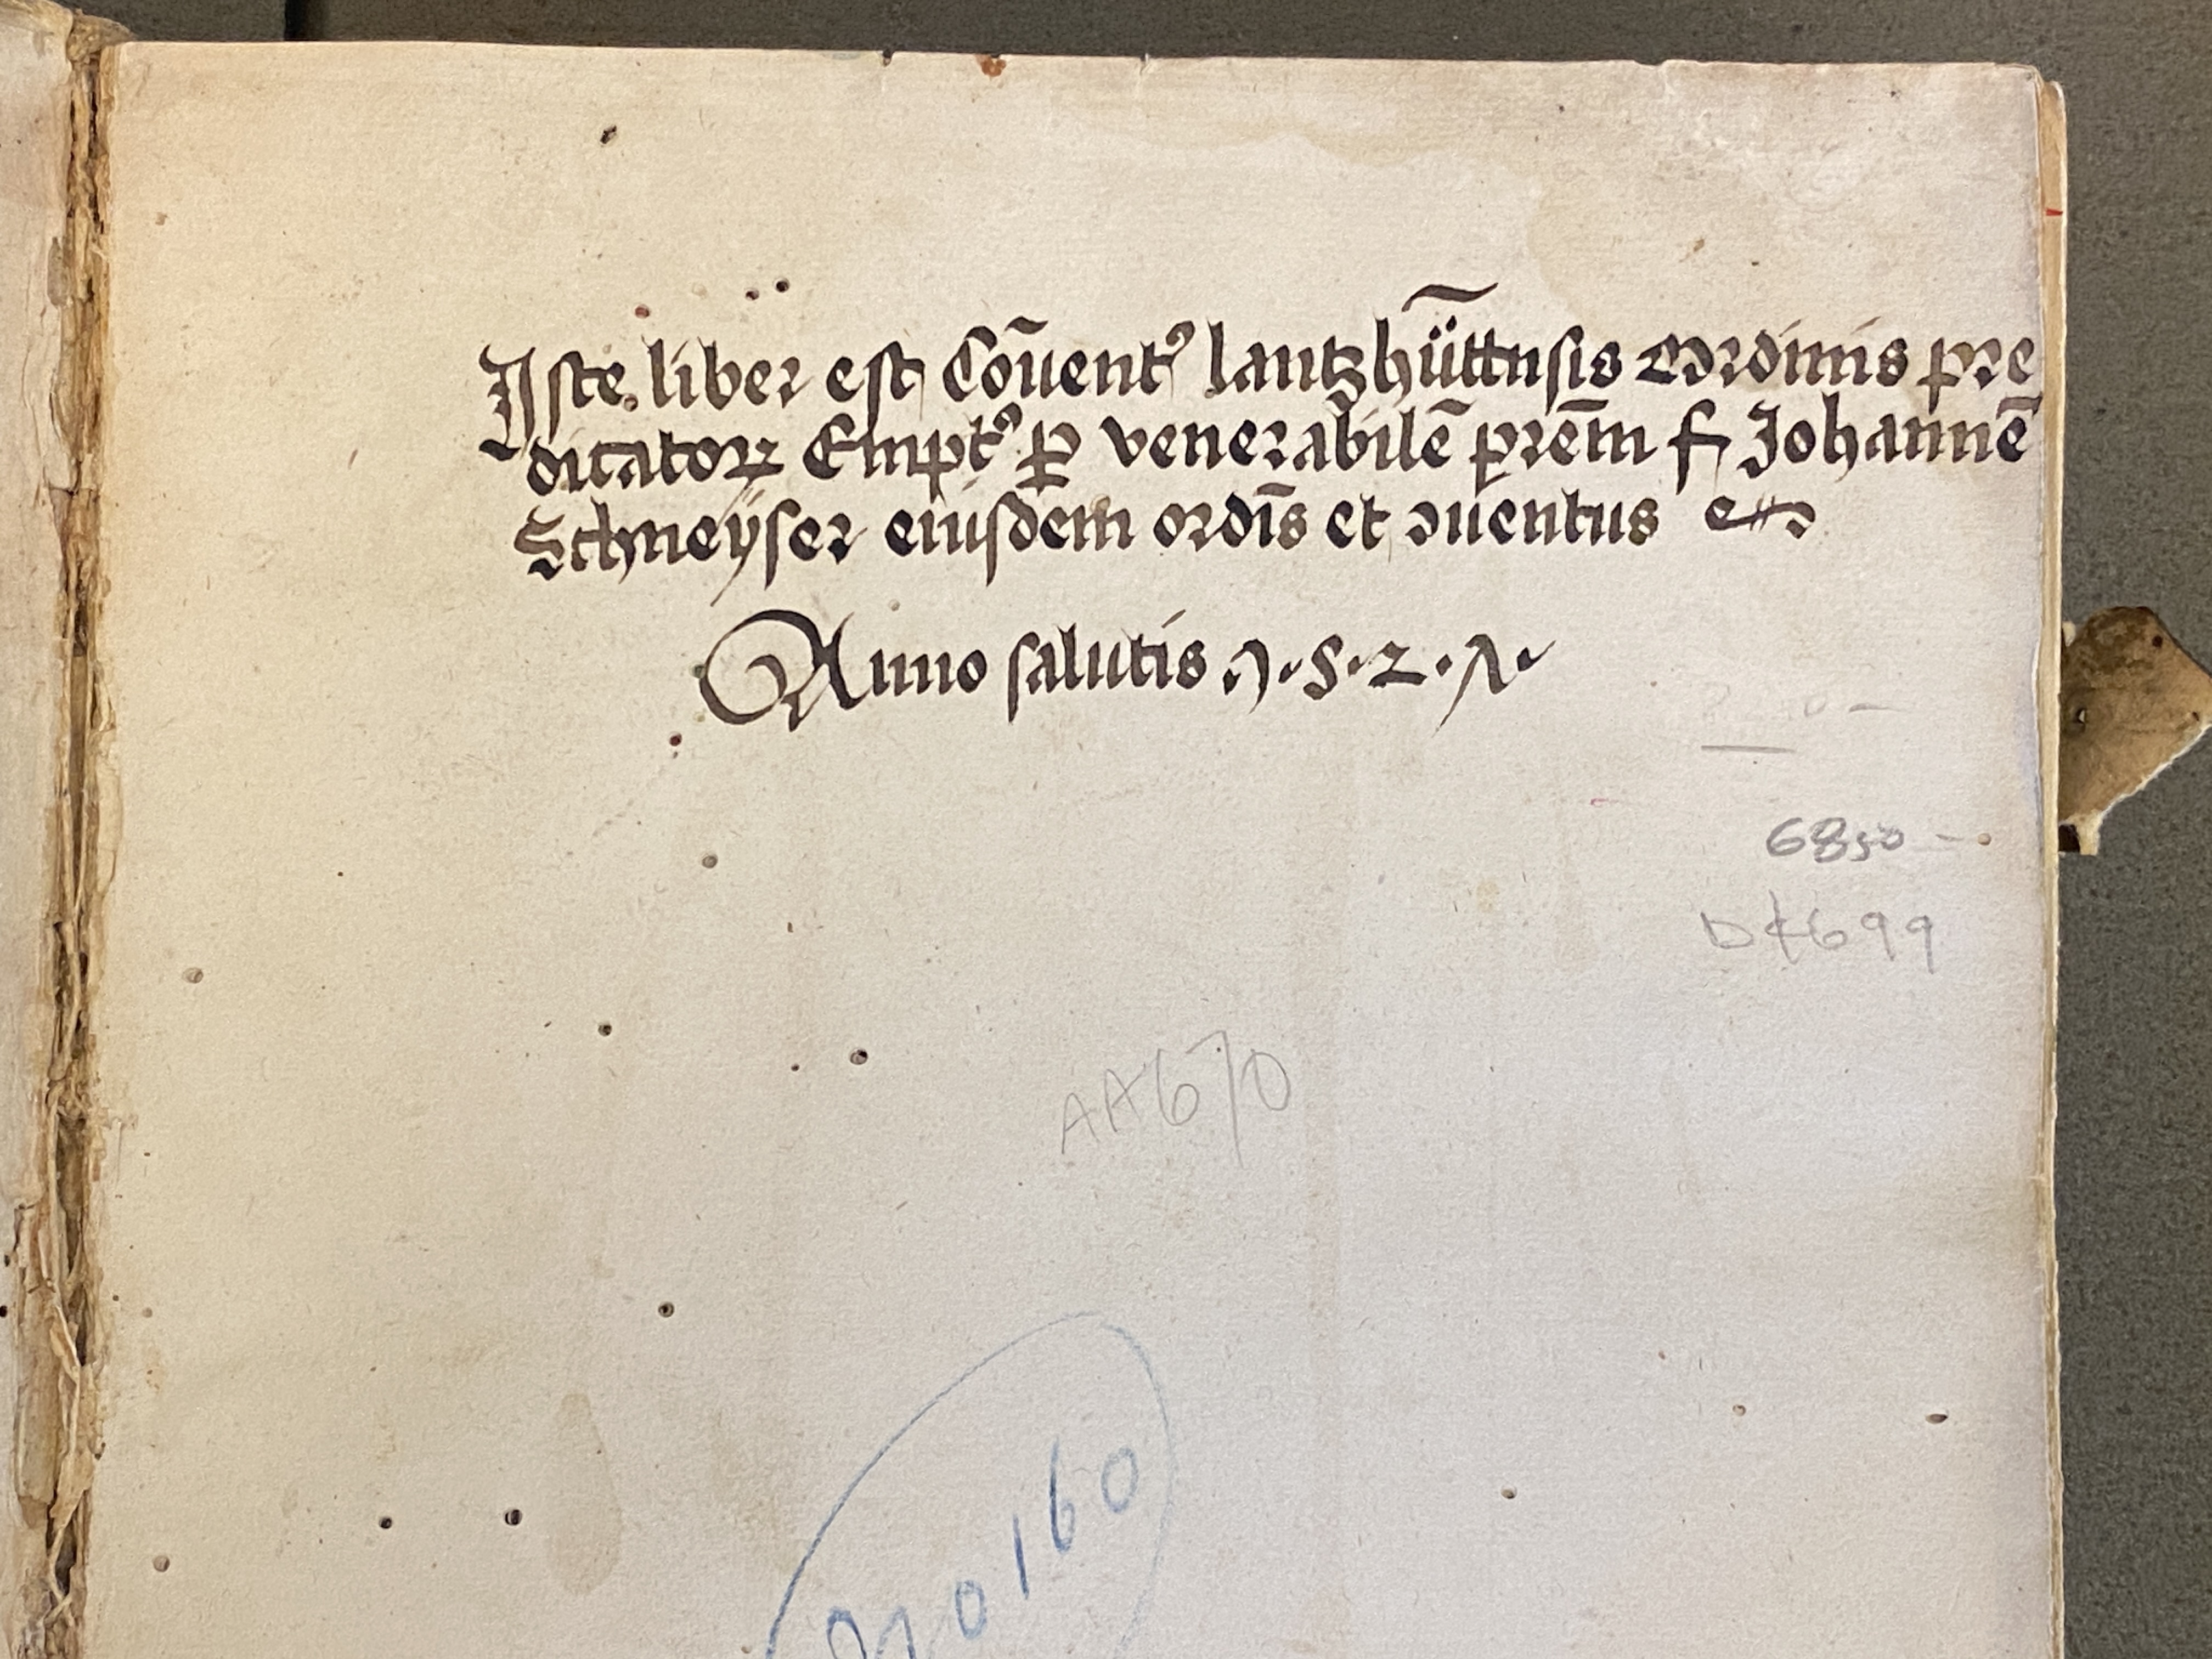 Iste liber est Cōuentꝯ lantzhüttn̄sis Ordinis pre
dicatoꝝ Emptꝯ ꝑ venerabilē prēm f Johannē
Schneÿser eiusdem ordīs et ꝯuentus
Anno salutis 1·5·2·7·
6850 –
D¢699
AA670
0160